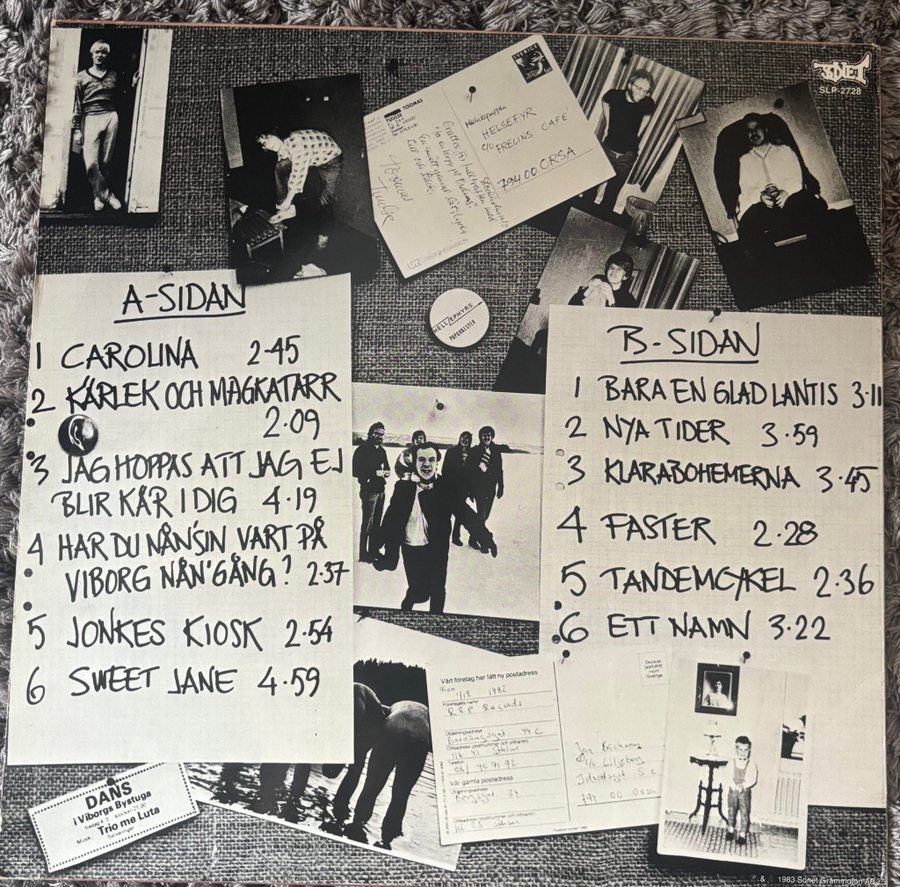 SONET
SLP-2728
TOOMAS
HELSEFYR
c/o FRELINS CAFÉ
794 00 ORSA
HELLZEPHYRS
POPORKESTER
A-SIDAN
1 CAROLINA 2-45
2 KÄRLEK OCH MAGKATARR
2.09
3 JAG HOPPAS ATT JAG EJ
BLIR KÄR I DIG 4.19
4 HAR DU NÅN'SIN VART PÅ
VIBORG NÅN'GÅNG? 2.37
5 JONKES KIOSK 2-54
6 SWEET JANE 4.59
B-SIDAN
1 BARA EN GLAD LANTIS 3.11
2 NYA TIDER 3.59
3 KLARABOHEMERNA 3.45
4 FASTER 2.28
5 TANDEMCYKEL 2.36
6 ETT NAMN 3.22
Vårt företag har fått ny postadress
Från
1/12 1982
Företagets namn
Records
Utdelningsadress
44 C
Vår gamla postadress
Utdelningsadress
Jan
DANS
i Viborgs Bystuga
Trio me Luta
Musik:
Serveringar
1983 Sonet Grammofon AB